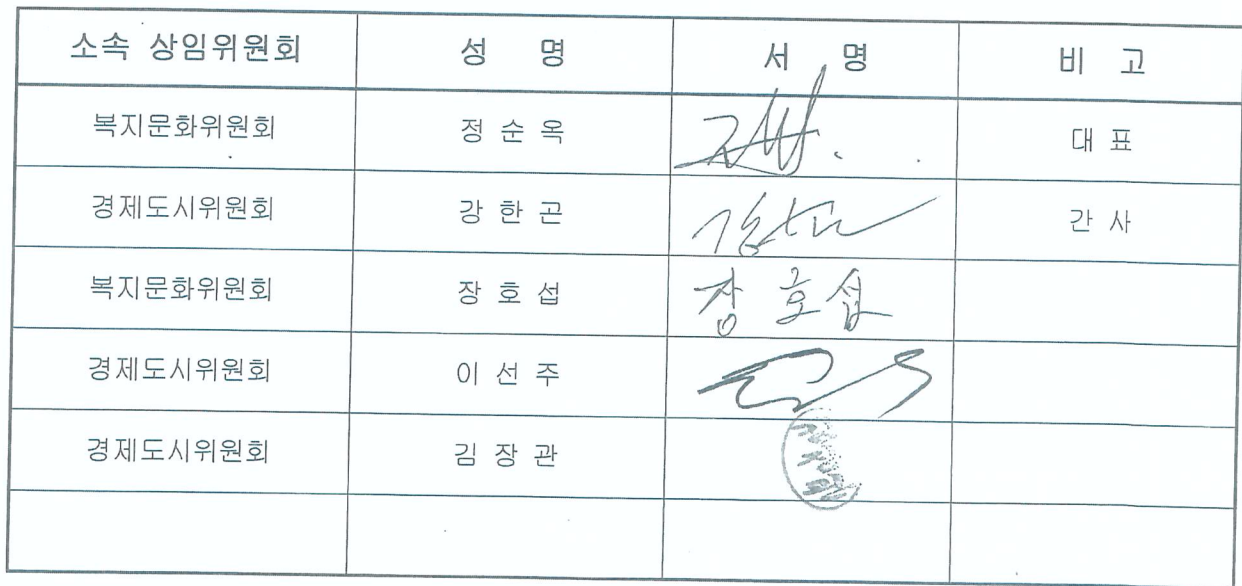 소속 상임위원회 성 명 서 명 비 고
복지문화위원회 정 순 옥 대 표
경제도시위원회 강 한 곤 간 사
복지문화위원회 장 호 섭 장 호 섭
경제도시위원회 이 선 주
경제도시위원회 김 장 관